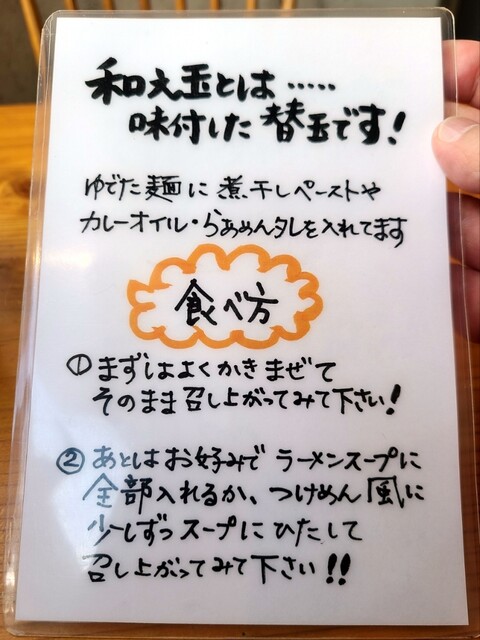 和え玉とは……
味付した替玉です!
ゆでた麺に煮干しペーストや
カレーオイル・らぁめんタレを入れてます
食べ方
①まずはよくかきまぜて
そのまま召し上がってみて下さい!
②あとはお好みでラーメンスープに
全部入れるか、つけめん風に
少しずつスープにひたして
召し上がってみて下さい!!